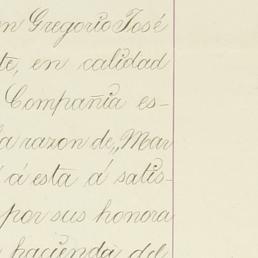 n Gregorio José
te, en calidad
Compañia es-
la razon de „Mar
á esta á satis-
por sus honora
hacienda del